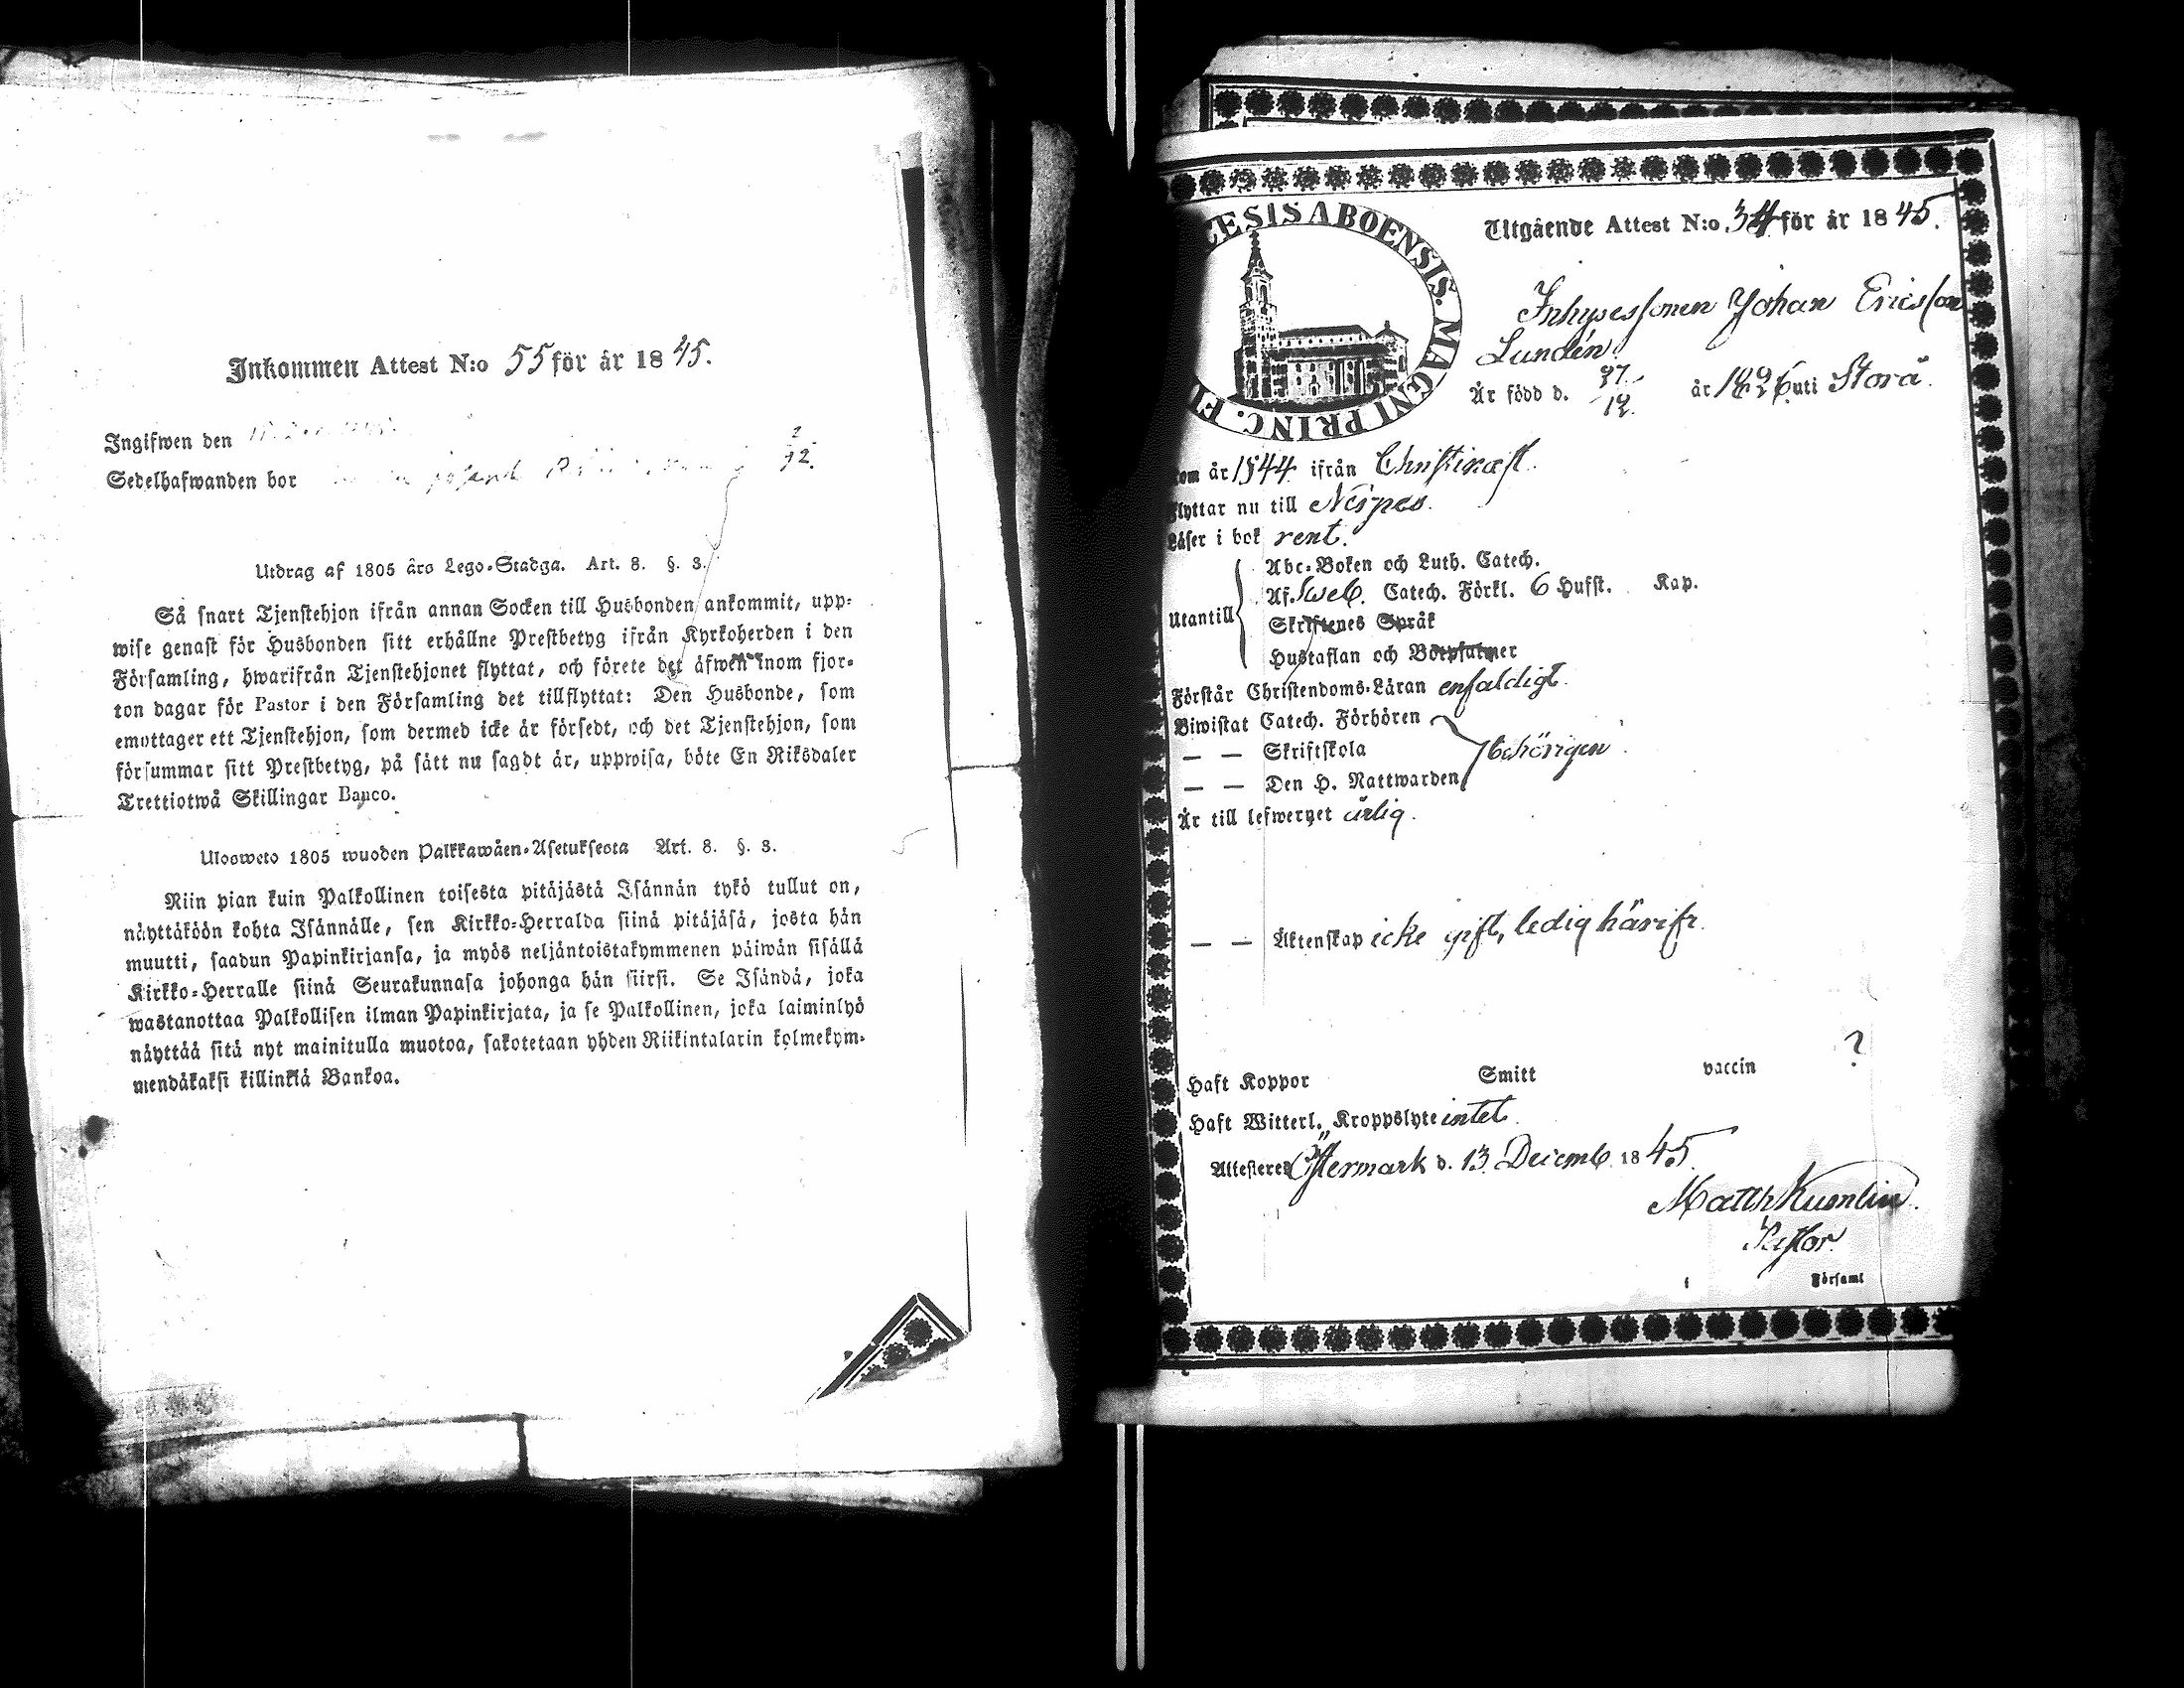 Inkommen Attest N:o 55 för år 1845.
Ingifwen den
Sedelhafwanden bor
2
72.
Utdrag af 1805 års Lego-Stadga. Art. 8. §. 3.
Så snart Tjenstehjon ifrån annan Socken till Husbonden ankommit, upp-
wise genast för Husbonden sitt erhållne Prestbetyg ifrån Kyrkoherden i den
Församling, hwarifrån Tjenstehjonet flyttat, och förete det äfwen inom fjor-
ton dagar för Pastor i den Församling det tillflyttat: Den Husbonde, som
emottager ett Tjenstehjon, som dermed icke är försedt, och det Tjenstehjon, som
försummar sitt Prestbetyg, på sätt nu sagdt är, uppwisa, böte En Riksdaler
Trettiotwå Skillingar Banco.
Ulosweto 1805 wuoden Palkkawäen-Asetuksesta Art. 8. §. 3.
Niin pian kuin Palkollinen toisesta pitäjästä Isännän tykö tullut on,
näyttäköön kohta Isännälle, sen Kirkko-Herralda siinä pitäjäsä, josta hän
muutti, saadun Papinkirjansa, ja myös neljäntoistakymmenen päiwän sisällä
Kirkko-Herralle siinä Seurakunnasa johonga hän siirsi. Se Isändä, joka
wastanottaa Palkollisen ilman Papinkirjata, ja se Palkollinen, joka laiminlyö
näyttää sitä nyt mainitulla muotoa, sakotetaan yhden Riikintalarin kolmekym-
mendäkaksi killinkiä Bankoa.
ESIS ABOENSIS. MAGNI PRINC. FI
Utgående Attest N:o 34 för år 1845.
Inhysessonen Johan Ericsson
Lundén.
Är född d. 27/12 år 1826 uti Storå.
om år 1844 ifrån Christinæst.
Flyttar nu till Nerpes.
Läser i bok rent.
Utantill
Abc-Boken och Luth. Catech.
Af. Sweb. Catech. Förkl. 6 Hufst. Kap.
Skriftenes Språk
Hustaflan och Botpsalmer
Förstår Christendoms-Läran enfaldigt.
Biwistat Catech. Förhören
— — Skriftskola behörigen
— — Den H. Nattwarden
Är till lefwernet ärlig.
— — Äktenskap icke gift, ledig härifr.
Haft Koppor Smitt vaccin ?
Haft Witterl. Kroppslyte intet.
Attesteres Östermark d. 13 Decemb. 1845.
Matth Kumlin.
Pastor.
i Församl